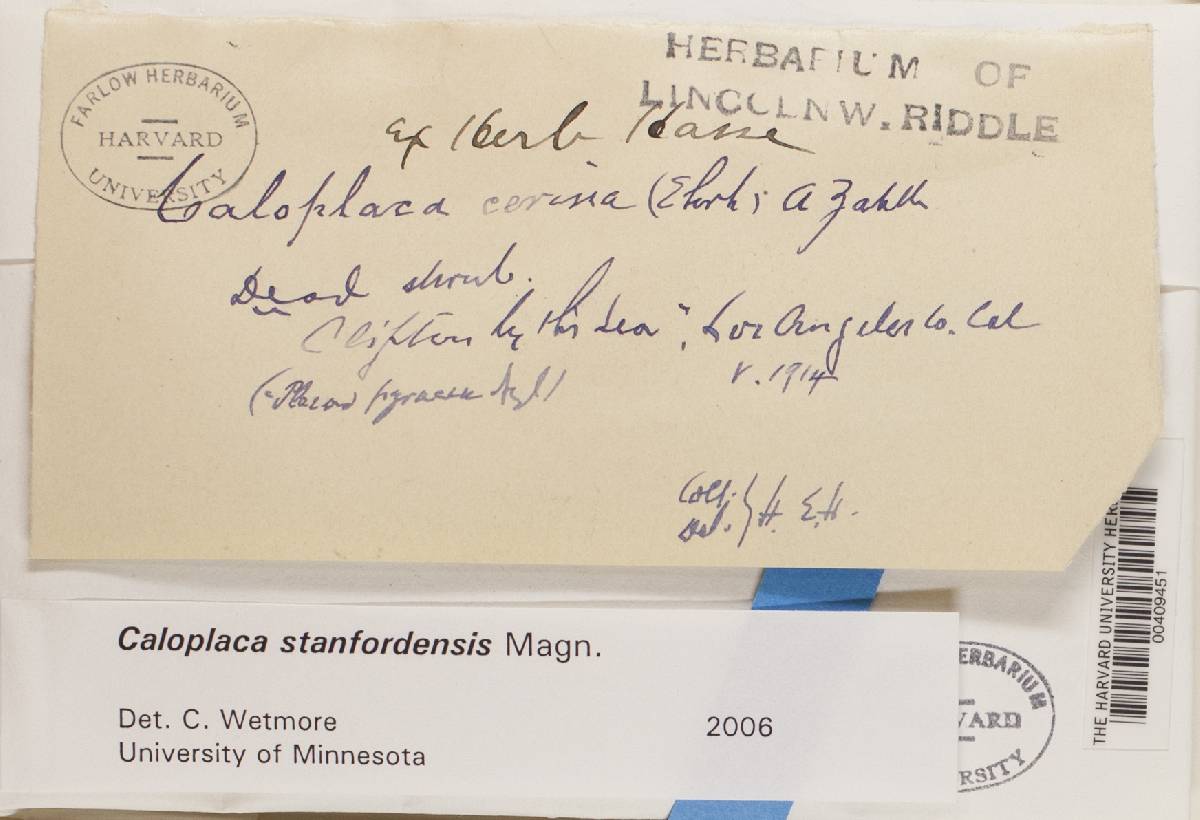 FARLOW HERBARIUM
HARVARD
UNIVERSITY
HERBARIUM OF
LINCOLN W. RIDDLE
Ex Herb Hasse
Caloplaca cerina (Ehrh) A Zahlb
Dead shrub.
Clifton by the Sea", Los Angeles Co. Cal
V. 1914
(
Coll.
Det. } H. E. H.
Caloplaca stanfordensis Magn.
Det. C. Wetmore 2006
University of Minnesota
ERBARIUM
VARD
RSITY
THE HARVARD UNIVERSITY HER
00409451